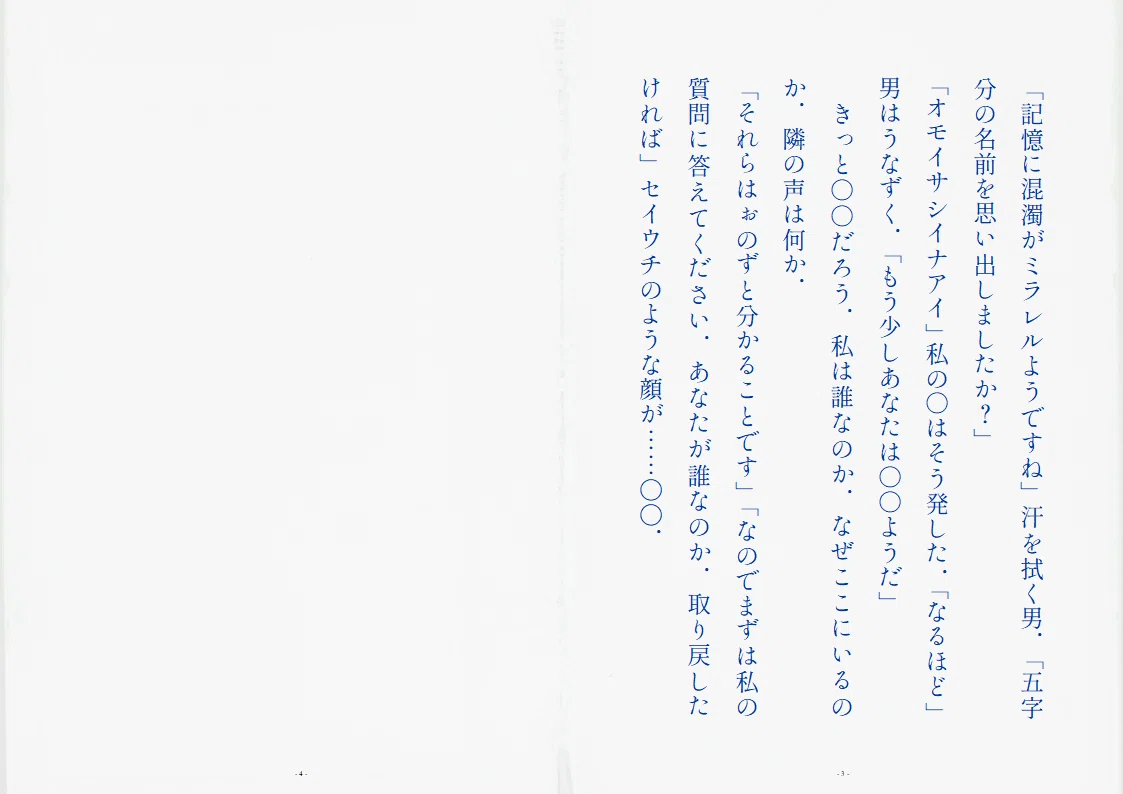 「記憶に混濁がミラレルようですね」汗を拭く男．「五字
分の名前を思い出しましたか？」
「オモイサシイナアイ」私の〇はそう発した．「なるほど」
男はうなずく．「もう少しあなたは〇〇ようだ」
きっと〇〇だろう．私は誰なのか．なぜここにいるの
か．隣の声は何か．
「それらはぉのずと分かることです」「なのでまずは私の
質問に答えてください．あなたが誰なのか．取り戻した
ければ」セイウチのような顔が……〇〇．
- 3 -
- 4 -